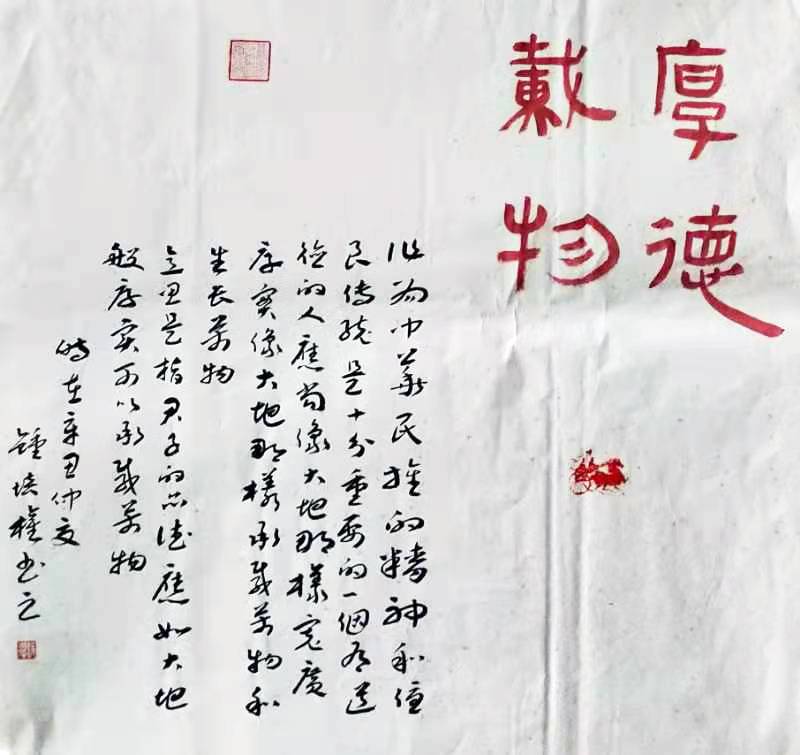 厚德
載物
作为中華民族的精神和優
良傳統是十分重要的一個有道
德的人應當像大地那樣寬廣
厚實像大地那樣承載萬物和
生長萬物
意思是指君子的品德應如大地
般厚實可以承載萬物
時在辛丑仲夏
鍾培權書之